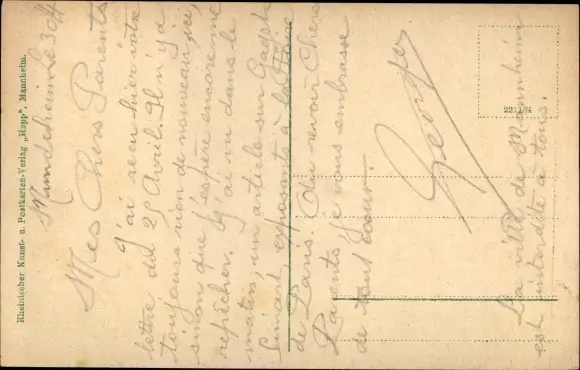 Mundenheim Le 30/4
Mes Chers Parents
J'ai reçu hier votre
lettre du 25 Avril. Il n'y a
toujours rien de nouveau ici,
sinon que j'espère encore me
repêcher. J'ai vu dans le
matin, un article sur
exposants à la Foire
de Paris. Au revoir Chers
Parents je vous embrasse
de tout coeur.
Georges
La ville de Mannheim
est interdite à tous.
22117/4
Rheinischer Kunst- u. Postkarten-Verlag „Hopp", Mannheim.